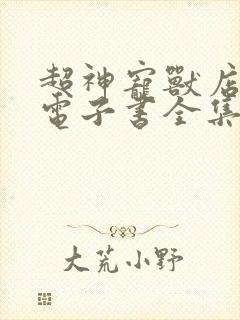 超神寵獸店
電子書全集
大荒小野